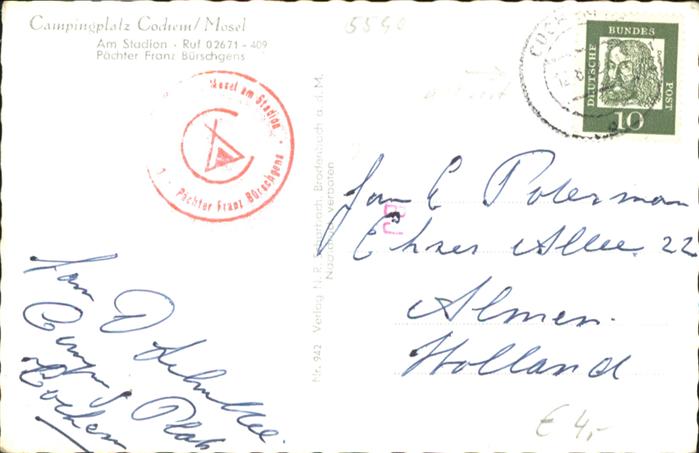 Campingplatz Cochem/Mosel
Am Stadion - Ruf 02671 - 409
Pächter Franz Bürschgens
Mosel am Stadion
Pächter Franz Bürschgens
5590
COCHEM
DEUTSCHE BUNDES POST
10
Nr. 942 Verlag N. R. Schurbach, Brodenbach a. d. M.
Nachdruck verboten
Fam
Camping Platz
Cochem
Fam E Poterman
Ehzer Allee 22
Almen.
Holland
€ 4,-